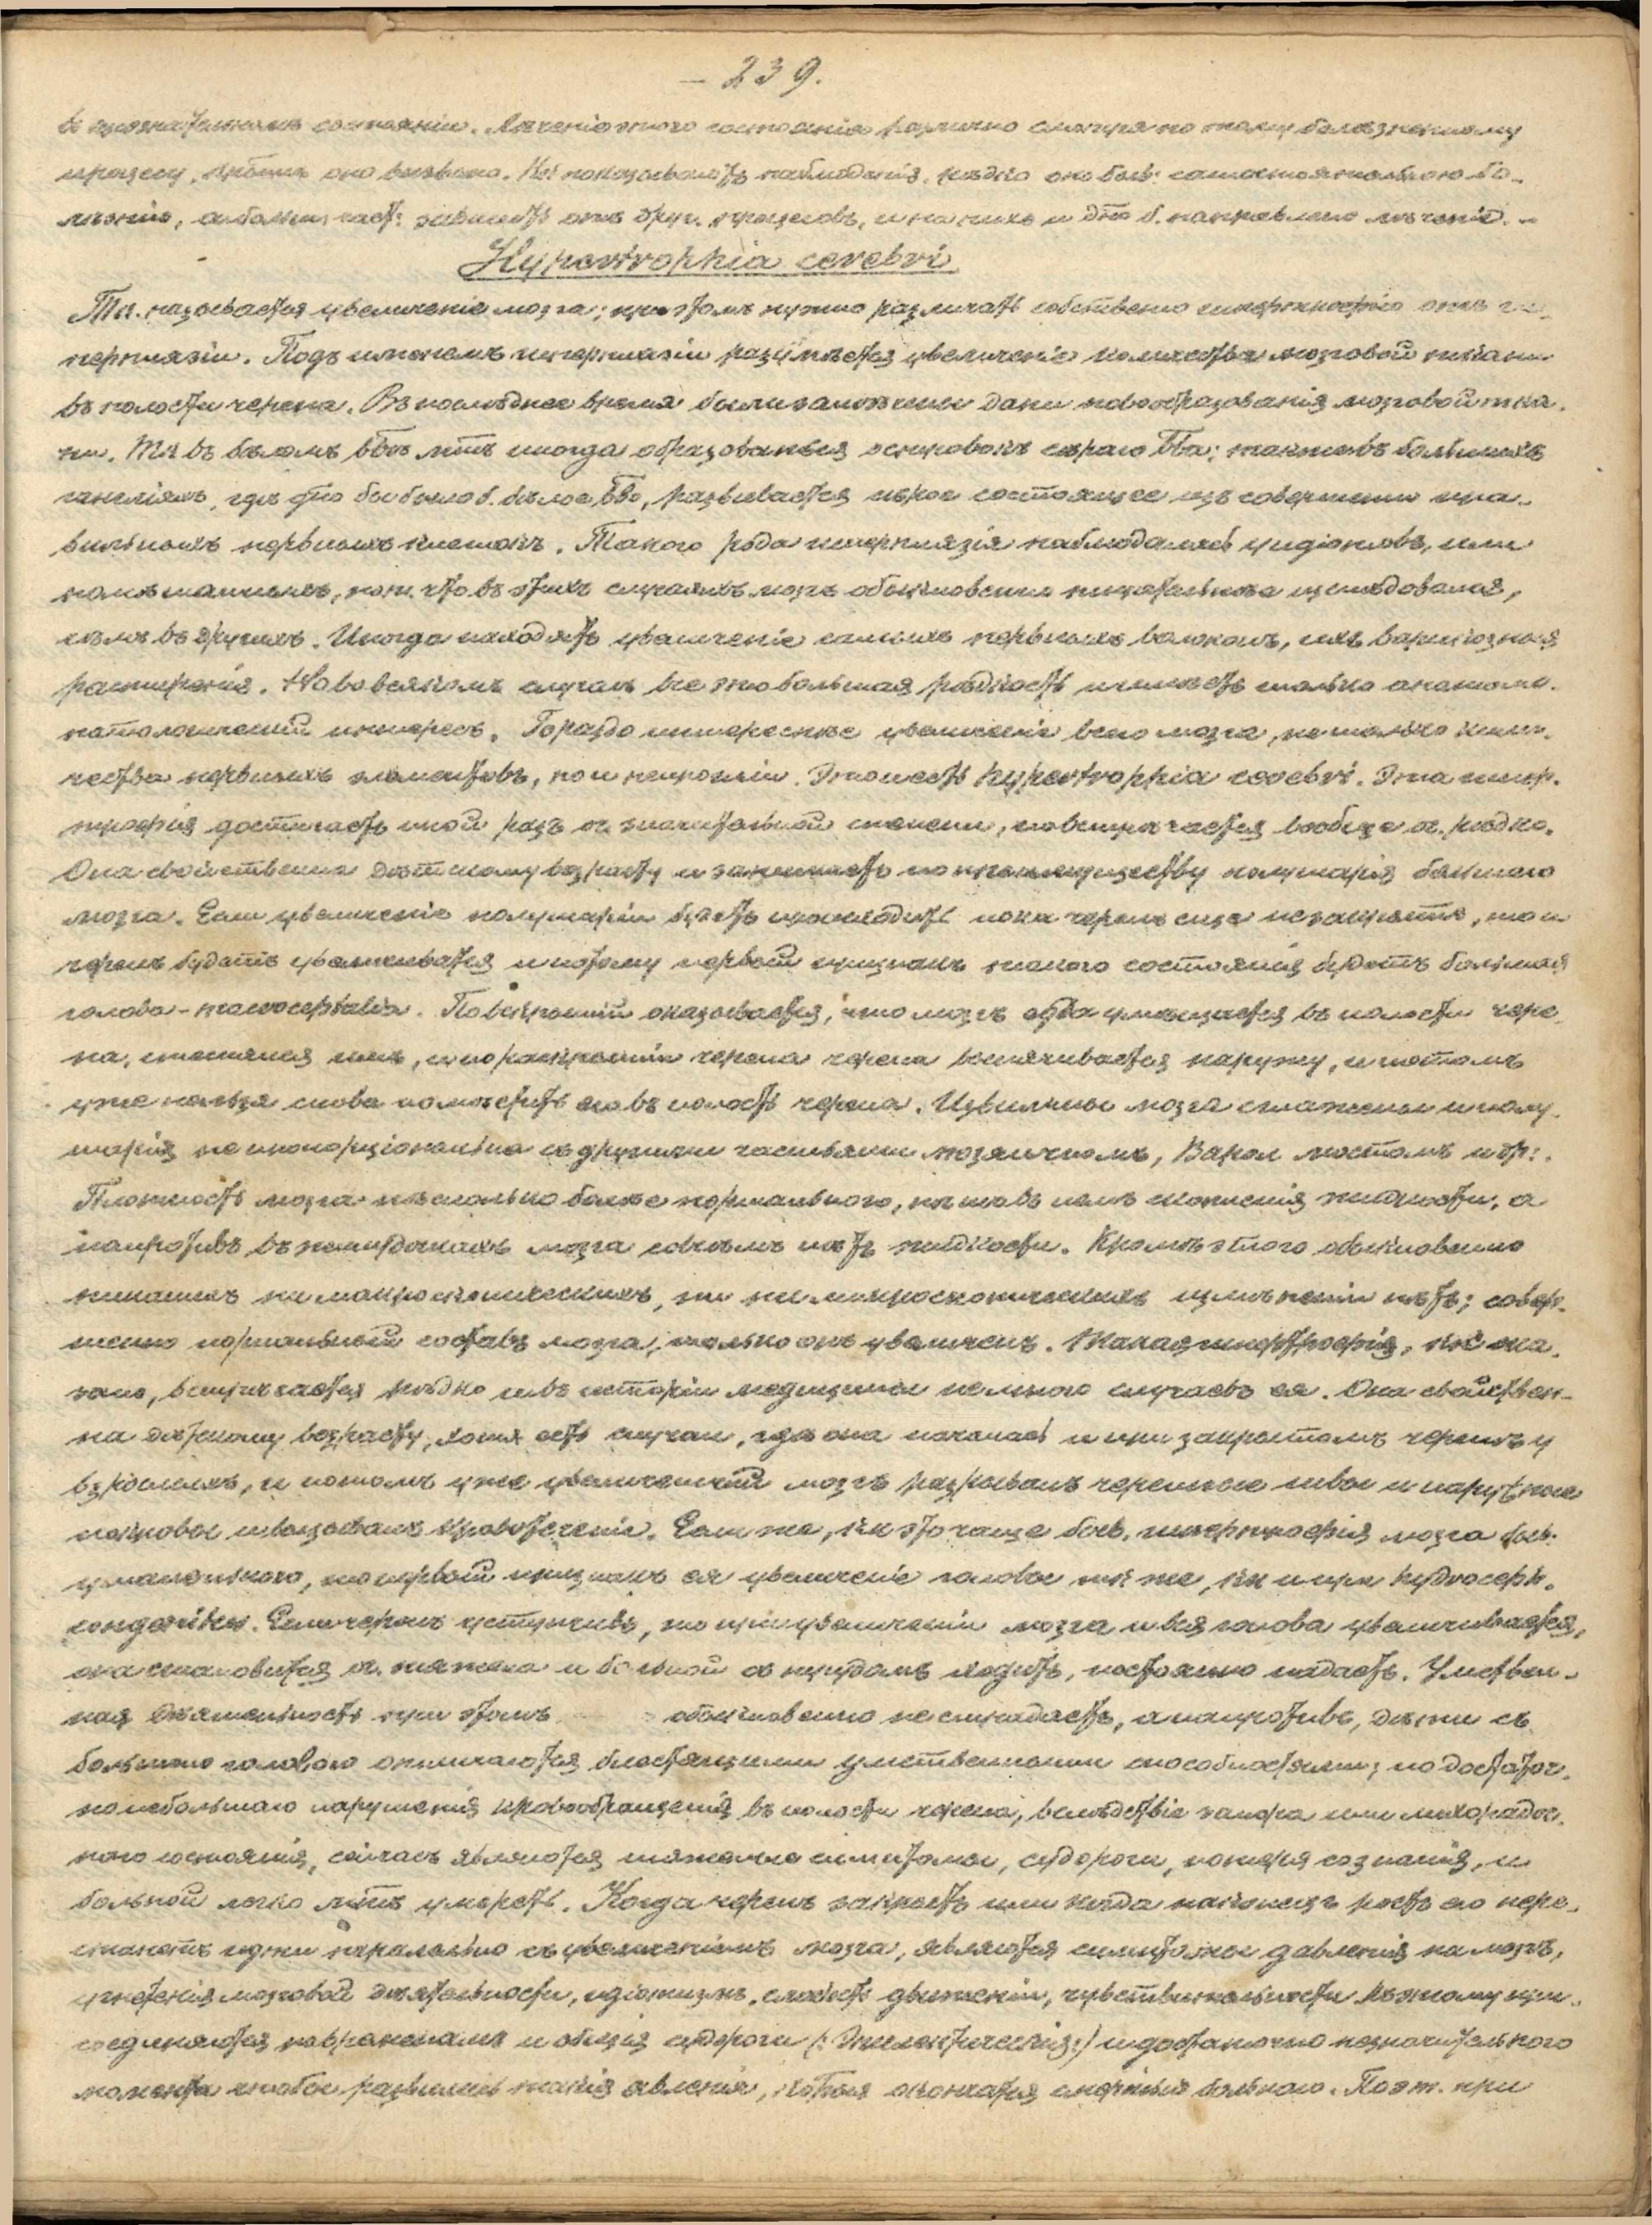 — 239.
состоянии. Лѣченіе этого состоянія различно смотря по тому болѣзненному
процесу, которымъ оно вызвано. показываютъ наблюденія, рѣдко оно быв: самостоятельною бо-
лѣзнію, а большею част: зависитъ отъ друг. процесовъ, и на нихъ и д̄но б. направлено лѣченіе. —
Hypertrophia cerebri.
Тк. называется увеличеніе мозга; при этомъ нужно различать собственно гипертрофію отъ ги-
перплязіи. Подъ именемъ гиперплазіи разумѣется увеличеніе количества мозговой ткани
въ полости черепа. Въ послѣднее время были заложены новообразованія мозговой тка-
ни. Тк въ бѣломъ иногда образоваться островокъ сѣраго также въ большихъ
гангліяхъ, гдѣ бы было б. бѣлое развивается сѣрое состоящее изъ совершенно пра-
вильныхъ нервныхъ клетокъ. Такого рода гиперплязія наблюдалась у идіотовъ, или
помѣшанныхъ, пот. что въ этихъ случаяхъ мозгъ обыкновенно тщательнѣе изслѣдовался,
чѣмъ въ другихъ. Иногда находятъ увеличеніе самыхъ нервныхъ волоконъ, ихъ варикозныя
расширенія. Но во всякомъ случаѣ все это большая рѣдкость и имѣетъ только анатомо-
патологическій интересъ. Гораздо интереснѣе увеличеніе всего мозга, не только коли-
чества нервныхъ элементовъ, но и Это и есть hypertrophia cerebri. Эта гипер-
трофія достигаетъ иной разъ оч. значительной степени, но встрѣчается вообще оч. рѣдко.
Она свойственна дѣтскому возрасту и занимаетъ по преимуществу полушарія большого
мозга. Если увеличеніе полушарій будетъ происходить пока черепъ еще не закрытъ, то и
черепъ будетъ увеличиваться и потому первый признакъ такого состоянія будетъ большая
голова — macrocephalia. По вскрытіи оказывается, что мозгъ едва умѣщается въ полости чере-
па, стѣсняется имъ, и по раскрытіи черепа черепа вытягивается наружу, и потомъ
уже нельзя снова помѣстить его въ полость черепа. Извилины мозга сглажены и полу-
шарія не пропорціональны съ другими частями мозжечкомъ, Варол. мостомъ и др:.
Плотность мозга нѣсколько болѣе нормальнаго, въ немъ скопленія жидкости, а
напротивъ въ желудочкахъ мозга совсѣмъ нѣтъ жидкости. Кромѣ этого обыкновенно
никакихъ ни макроскопическихъ, ни микроскопическихъ измѣненій нѣтъ; совер-
шенно нормальный составъ мозга, только онъ увеличенъ. Такая гипертрофія, ска-
зано, встрѣчается рѣдко и въ исторіи медицины не много случаевъ ея. Она свойствен-
на дѣтскому возрасту, хотя есть случаи, гдѣ она началась и при закрытомъ черепѣ у
взрослыхъ, и потомъ уже увеличенный мозгъ разрывалъ черепные швы и наружные
покровы и вызывалъ кровотеченіе. Если же, кк это чаще быв. гипертрофія мозга быв.
у маленькаго, то первый признакъ ея увеличеніе головы тк же, кк и при hydroceph.
congenitus. Если черепъ уступчивъ, то при увеличеніи мозга и вся голова увеличивается,
она становится оч. тяжела и больной съ трудомъ ходитъ, постоянно падаетъ. Умствен-
ная дѣятельность при этомъ обыкновенно не страдаетъ, а напротивъ, дѣти съ
большою головою отличаются блестящими умственными способностями; но достаточ-
но небольшаго нарушенія кровообращенія въ полости черепа, вслѣдствіе запора или лихорадоч-
наго состоянія, сейчасъ являются тяжелые симптомы, судороги, потеря сознанія, и
больной легко умереть. Когда черепъ закрытъ или когда наконецъ ростъ его пере-
станетъ идти паралельно съ увеличеніемъ мозга, являются симптомы давленія на мозгъ,
угнетенія мозговой дѣятельности, идіотизмъ, слабость движеній, чувствительности. Къ этому при-
соединяются и общія судороги (: Эпилептическія:) и достаточно незначительнаго
момента чтобы развились такія явленія, которыя окончатся смертью больного. Поэт. при